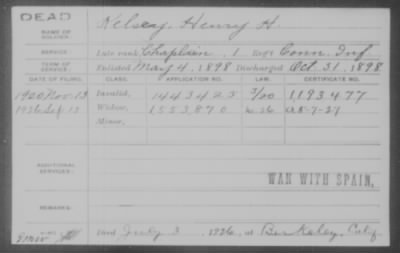 DEAD
NAME OF SOLDIER: Kelsey, Henry H.
SERVICE: Late rank Chaplain, 1 Reg't Conn. Inf
TERM OF SERVICE: Enlisted May 4, 1898 Discharged Oct 31, 1898
DATE OF FILING. CLASS. APPLICATION NO. LAW. CERTIFICATE NO.
1920 Nov. 13 Invalid, 1443425 1193477
1926 Sep. 13 Widow, 1553870 A 8-7-27
Minor,
ADDITIONAL SERVICES:
WAR WITH SPAIN.
REMARKS:
Died July 3, 1926, at Berkeley, Calif